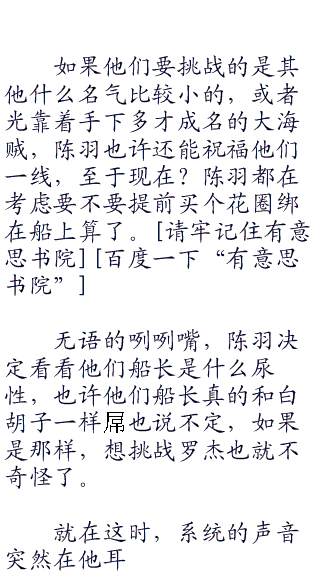 如果他们要挑战的是其
他什么名气比较小的，或者
光靠着手下多才成名的大海
贼，陈羽也许还能祝福他们
一线，至于现在？陈羽都在
考虑要不要提前买个花圈绑
在船上算了。[请牢记住有意
思书院][百度一下“有意思
书院”]
无语的咧咧嘴，陈羽决
定看看他们船长是什么尿
性，也许他们船长真的和白
胡子一样屌也说不定，如果
是那样，想挑战罗杰也就不
奇怪了。
就在这时，系统的声音
突然在他耳